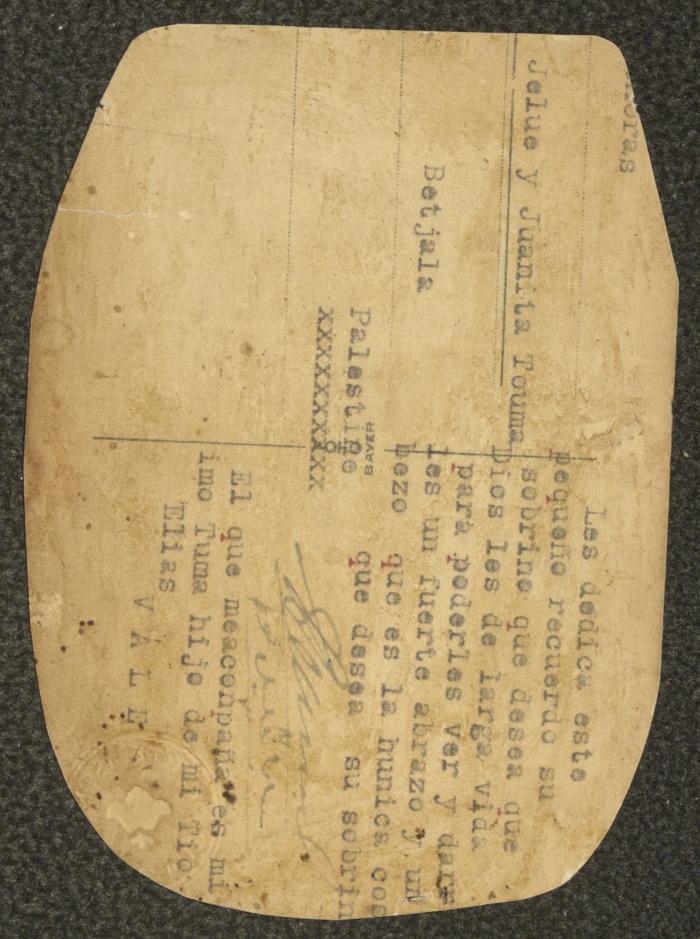 oras
Jelue y Juanita Touma
Betjala
Palestine
xxxxxxxxxx
BAYER
Les dedica este
pequeño recuerdo su
sobrino que desea que
Dios les de larga vida
para poderles ver y darr
les un fuerte abrazo y un
bezo que es la hunica cos
que desea su sobrin
El que meaconpaña es mi
imo Tuma hijo de mi Tio
Elias
V A L E